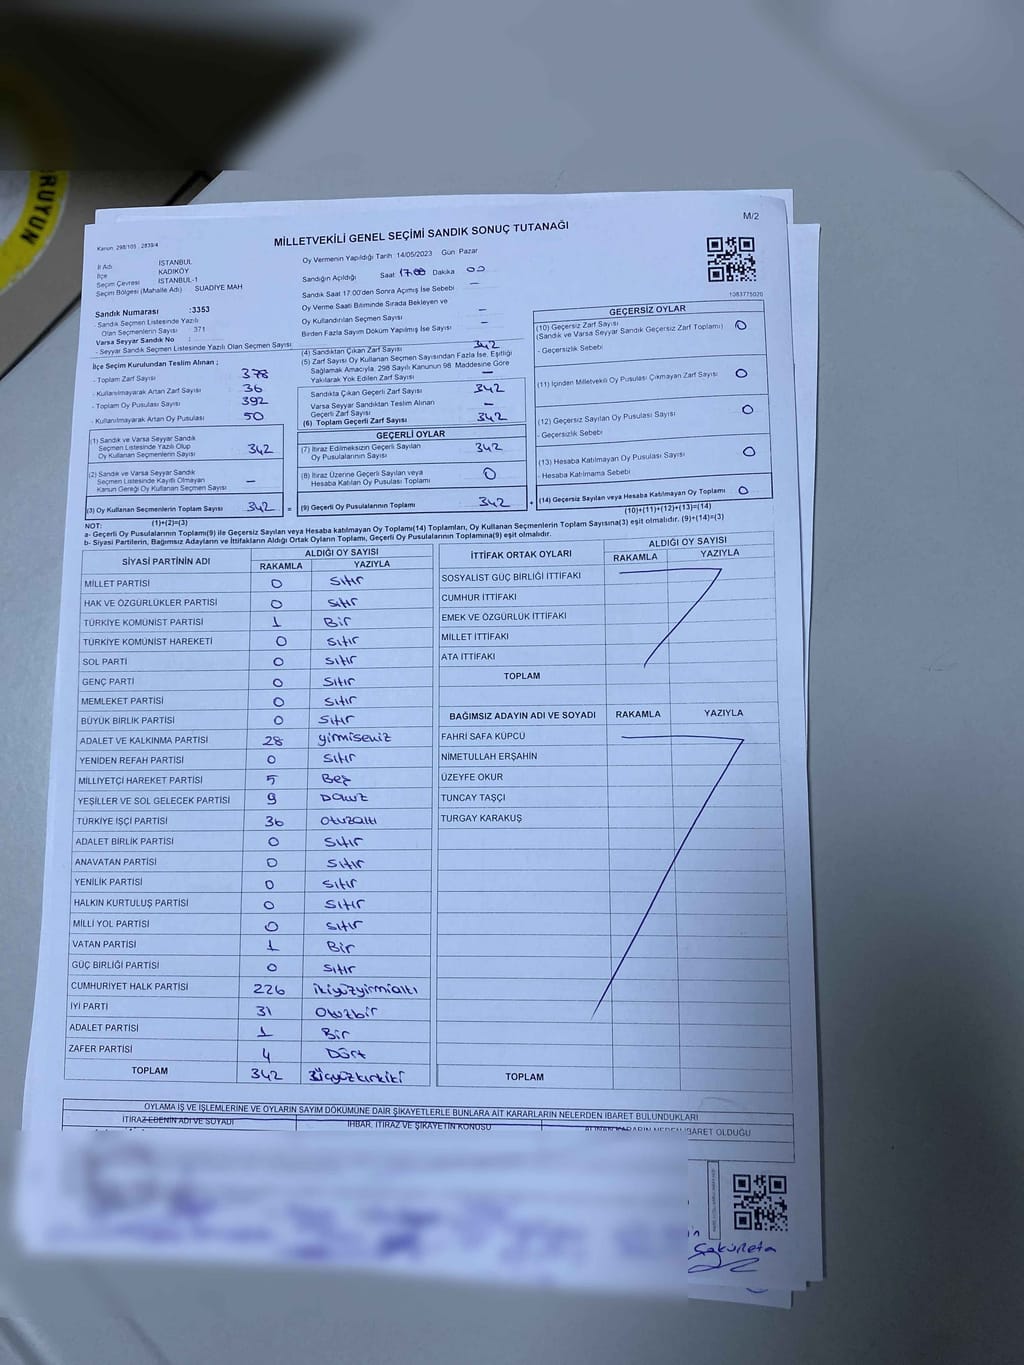 RUYUN
M/2
Kanun: 298/105 - 2839/4
MİLLETVEKİLİ GENEL SEÇİMİ SANDIK SONUÇ TUTANAĞI
İl Adı İSTANBUL
İlçe KADIKÖY
Seçim Çevresi İSTANBUL-1
Seçim Bölgesi (Mahalle Adı) SUADİYE MAH
Oy Vermenin Yapıldığı Tarih 14/05/2023 Gün Pazar
Sandığın Açıldığı Saat 17:00 Dakika 00
Sandık Saat 17:00'den Sonra Açılmış İse Sebebi —
Oy Verme Saati Bitiminde Sırada Bekleyen ve
Oy Kullandırılan Seçmen Sayısı —
Birden Fazla Sayım Döküm Yapılmış İse Sayısı —
1083775020
Sandık Numarası :3353
Sandık Seçmen Listesinde Yazılı
Olan Seçmenlerin Sayısı : 371
Varsa Seyyar Sandık No :
- Seyyar Sandık Seçmen Listesinde Yazılı Olan Seçmen Sayısı
İlçe Seçim Kurulundan Teslim Alınan ;
- Toplam Zarf Sayısı 378
- Kullanılmayarak Artan Zarf Sayısı 36
- Toplam Oy Pusulası Sayısı 392
- Kullanılmayarak Artan Oy Pusulası 50
(1) Sandık ve Varsa Seyyar Sandık
Seçmen Listesinde Yazılı Olup
Oy Kullanan Seçmenlerin Sayısı 342
(2) Sandık ve Varsa Seyyar Sandık
Seçmen Listesinde Kayıtlı Olmayan
Kanun Gereği Oy Kullanan Seçmen Sayısı —
(3) Oy Kullanan Seçmenlerin Toplam Sayısı 342 =
(1)+(2)=(3)
(4) Sandıktan Çıkan Zarf Sayısı 342
(5) Zarf Sayısı Oy Kullanan Seçmen Sayısından Fazla İse, Eşitliği
Sağlamak Amacıyla, 298 Sayılı Kanunun 98. Maddesine Göre
Yakılarak Yok Edilen Zarf Sayısı —
Sandıkta Çıkan Geçerli Zarf Sayısı 342
Varsa Seyyar Sandıktan Teslim Alınan
Geçerli Zarf Sayısı —
(6) Toplam Geçerli Zarf Sayısı 342
GEÇERLİ OYLAR
(7) İtiraz Edilmeksizin Geçerli Sayılan
Oy Pusulalarının Sayısı 342
(8) İtiraz Üzerine Geçerli Sayılan veya
Hesaba Katılan Oy Pusulası Toplamı 0
(9) Geçerli Oy Pusulalarının Toplamı 342 +
GEÇERSİZ OYLAR
(10) Geçersiz Zarf Sayısı 0
(Sandık ve Varsa Seyyar Sandık Geçersiz Zarf Toplamı)
- Geçersizlik Sebebi
(11) İçinden Milletvekili Oy Pusulası Çıkmayan Zarf Sayısı 0
(12) Geçersiz Sayılan Oy Pusulası Sayısı 0
- Geçersizlik Sebebi
(13) Hesaba Katılmayan Oy Pusulası Sayısı 0
- Hesaba Katılmama Sebebi
(14) Geçersiz Sayılan veya Hesaba Katılmayan Oy Toplamı 0
(10)+(11)+(12)+(13)=(14)
NOT:
a- Geçerli Oy Pusulalarının Toplamı(9) ile Geçersiz Sayılan veya Hesaba katılmayan Oy Toplamı(14) Toplamları, Oy Kullanan Seçmenlerin Toplam Sayısına(3) eşit olmalıdır. (9)+(14)=(3)
b- Siyasi Partilerin, Bağımsız Adayların ve İttifakların Aldığı Ortak Oyların Toplamı, Geçerli Oy Pusulalarının Toplamına(9) eşit olmalıdır.
SİYASİ PARTİNİN ADI ALDIĞI OY SAYISI
RAKAMLA YAZIYLA
MİLLET PARTİSİ 0 Sıfır
HAK VE ÖZGÜRLÜKLER PARTİSİ 0 Sıfır
TÜRKİYE KOMÜNİST PARTİSİ 1 Bir
TÜRKİYE KOMÜNİST HAREKETİ 0 Sıfır
SOL PARTİ 0 Sıfır
GENÇ PARTİ 0 Sıfır
MEMLEKET PARTİSİ 0 Sıfır
BÜYÜK BİRLİK PARTİSİ 0 Sıfır
ADALET VE KALKINMA PARTİSİ 28 yirmisekiz
YENİDEN REFAH PARTİSİ 0 Sıfır
MİLLİYETÇİ HAREKET PARTİSİ 5 Beş
YEŞİLLER VE SOL GELECEK PARTİSİ 9 Dokuz
TÜRKİYE İŞÇİ PARTİSİ 36 Otuzaltı
ADALET BİRLİK PARTİSİ 0 Sıfır
ANAVATAN PARTİSİ 0 Sıfır
YENİLİK PARTİSİ 0 Sıfır
HALKIN KURTULUŞ PARTİSİ 0 Sıfır
MİLLİ YOL PARTİSİ 0 Sıfır
VATAN PARTİSİ 1 Bir
GÜÇ BİRLİĞİ PARTİSİ 0 Sıfır
CUMHURİYET HALK PARTİSİ 226 ikiyüzyirmialtı
İYİ PARTİ 31 Otuzbir
ADALET PARTİSİ 1 Bir
ZAFER PARTİSİ 4 Dört
TOPLAM 342 Üçyüzkırkiki
İTTİFAK ORTAK OYLARI ALDIĞI OY SAYISI
RAKAMLA YAZIYLA
SOSYALİST GÜÇ BİRLİĞİ İTTİFAKI
CUMHUR İTTİFAKI
EMEK VE ÖZGÜRLÜK İTTİFAKI
MİLLET İTTİFAKI
ATA İTTİFAKI
TOPLAM
BAĞIMSIZ ADAYIN ADI VE SOYADI RAKAMLA YAZIYLA
FAHRİ SAFA KÜPCÜ
NİMETULLAH ERŞAHİN
ÜZEYFE OKUR
TUNCAY TAŞÇI
TURGAY KARAKUŞ
TOPLAM
OYLAMA İŞ VE İŞLEMLERİNE VE OYLARIN SAYIM DÖKÜMÜNE DAİR ŞİKAYETLERLE BUNLARA AİT KARARLARIN NELERDEN İBARET BULUNDUKLARI
İTİRAZ EDENİN ADI VE SOYADI İHBAR, İTİRAZ VE ŞİKAYETİN KONUSU ALINAN KARARIN NEDEN İBARET OLDUĞU